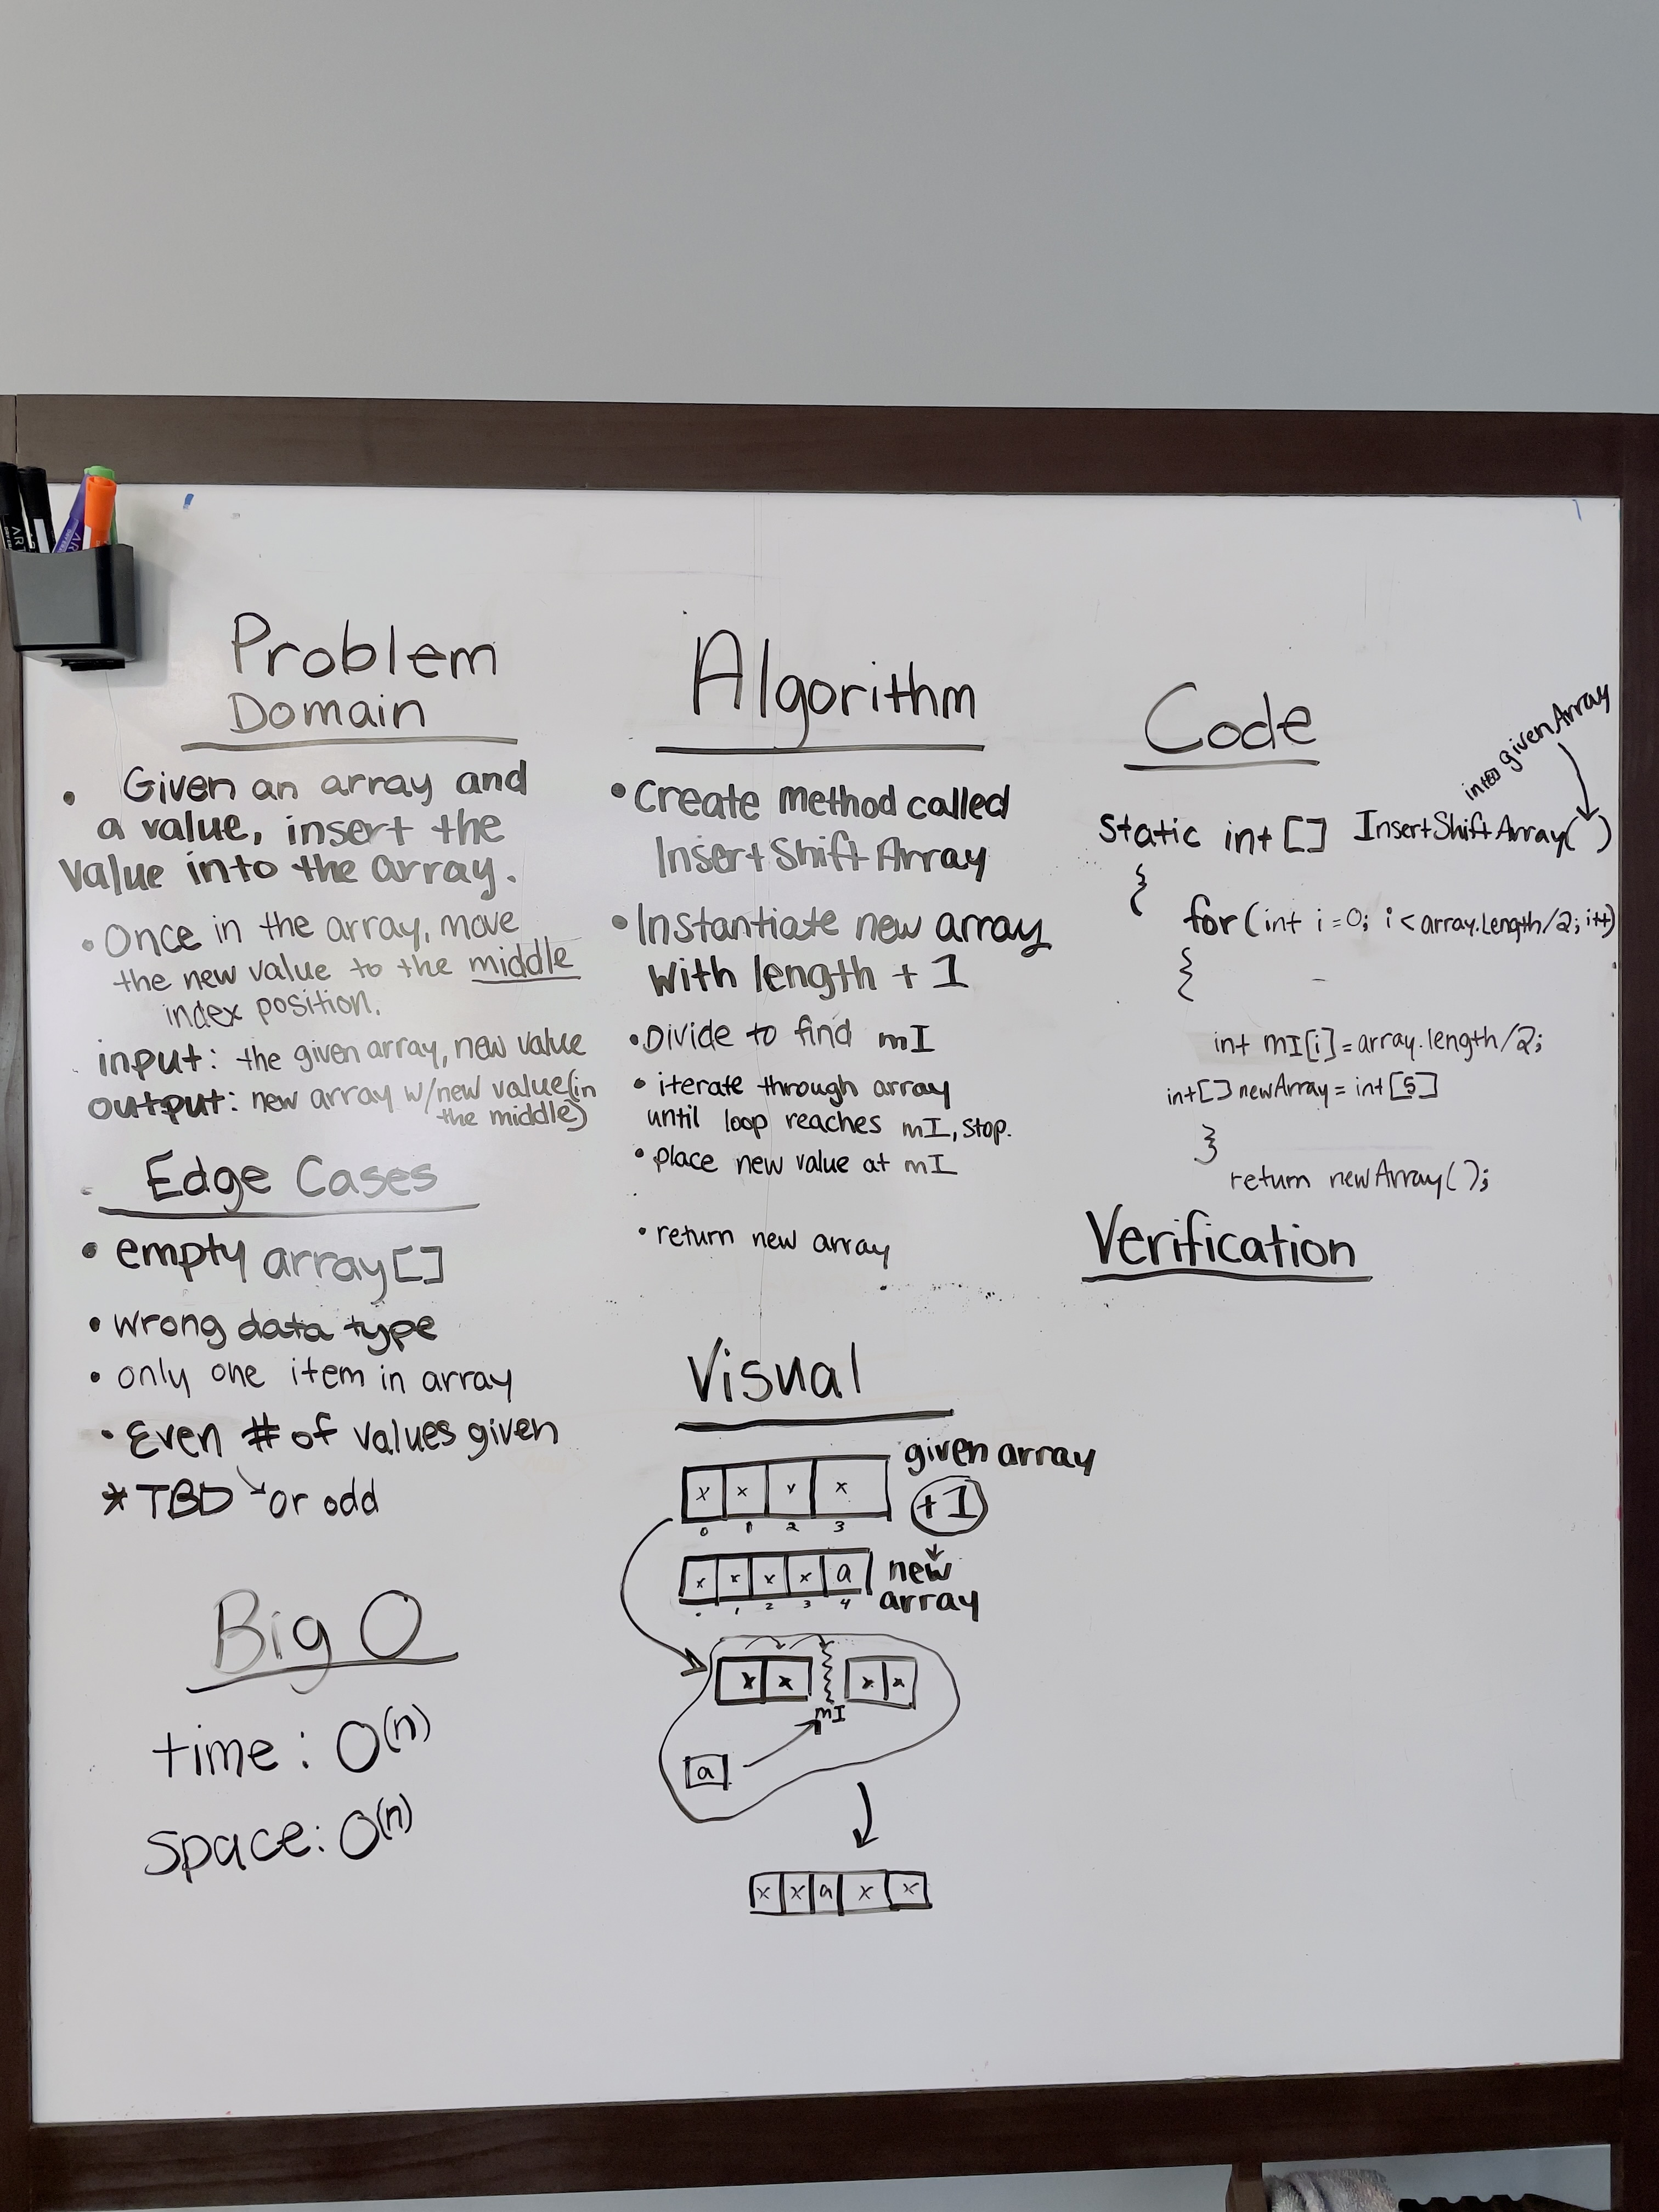 Problem
Domain
• Given an array and
a value, insert the
value into the array.
• Once in the array, move
the new value to the middle
index position.
input: the given array, new value
output: new array w/new value(in
the middle)
Edge Cases
• empty array[]
• wrong data type
• only one item in array
• Even # of values given
* TBD or odd
Big O
time: O(n)
space: O(n)
Algorithm
• Create method called
InsertShiftArray
• Instantiate new array
with length + 1
• Divide to find mI
• iterate through array
until loop reaches mI, stop.
• place new value at mI
• return new array
Visual
given array
x x x x
+1
0 1 2 3
x x x x a
new
array
1 2 3 4
x x x x
mI
a
x x a x x
Code
int[] givenArray
static int[] InsertShiftArray( )
{
for(int i=0; i<array.Length/2; i++)
{
int mI[i]=array.length/2;
int[] newArray = int[5]
}
return newArray();
Verification